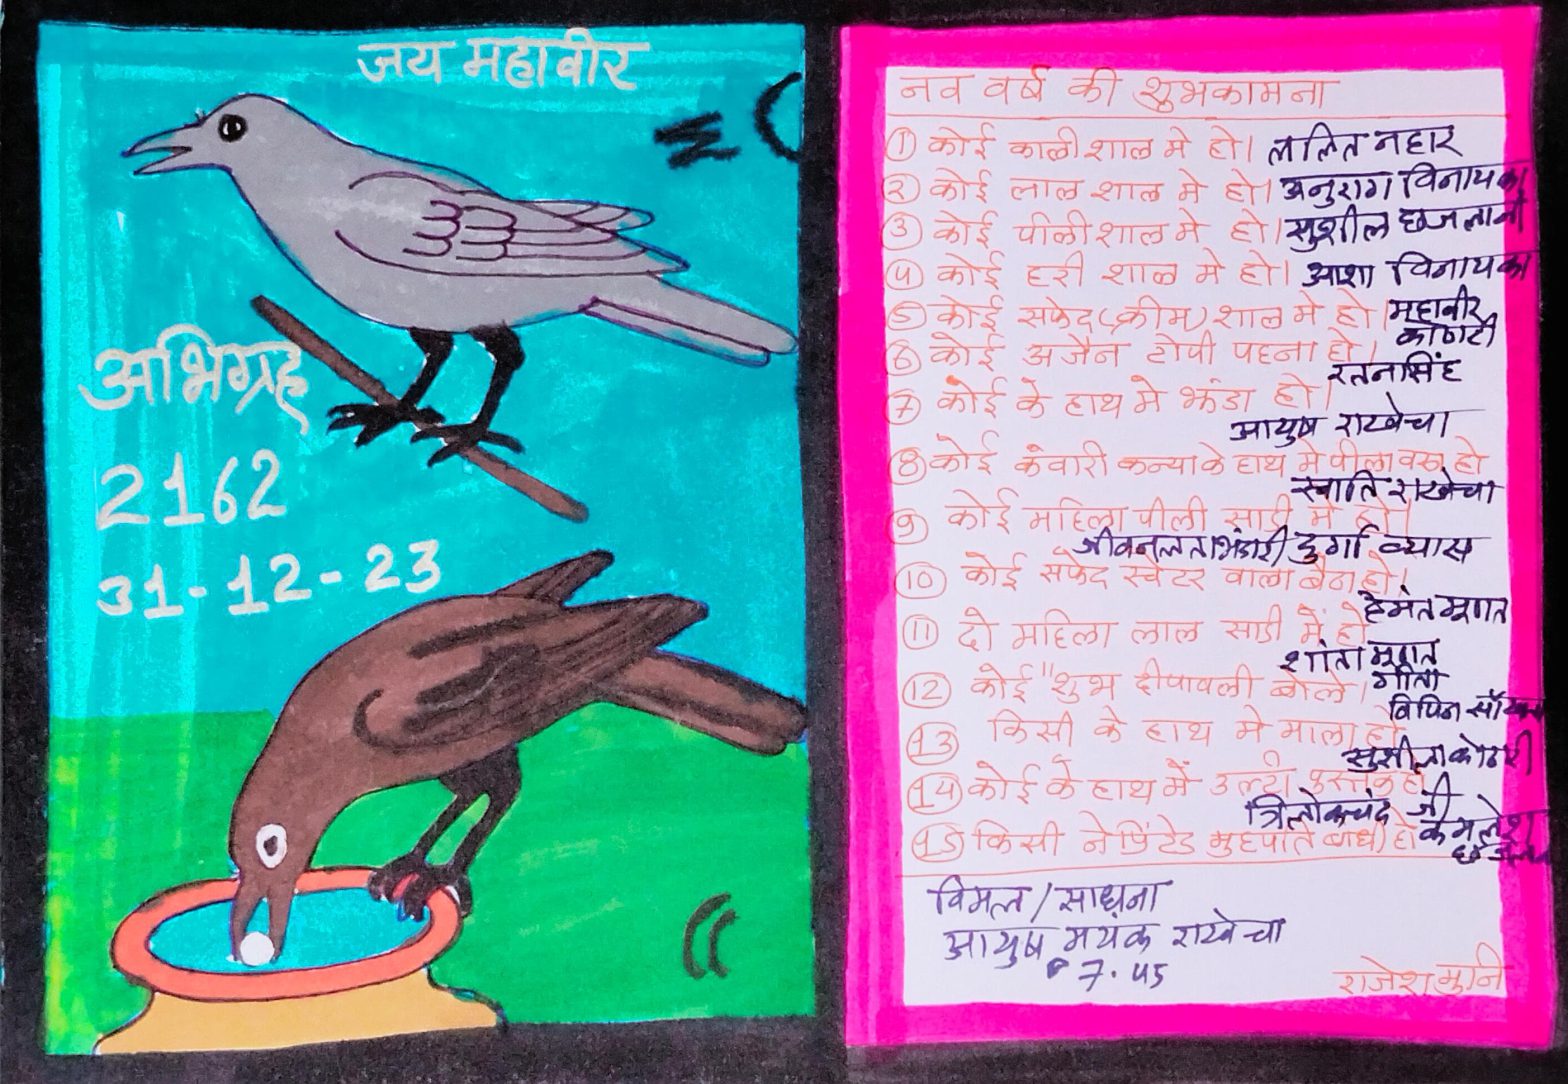 जय महावीर
अभिग्रह
2162
31-12-23
नव वर्ष की शुभकामना
① कोई काळी शाल मे हो। ललित नहार
② कोई लाल शाल मे हो। अनुराग विनायका
③ कोई पीळी शाल मे हो। सुशील छजलानी
④ कोई हरी शाल मे हो। आशा विनायका
⑤ कोई सफेद (क्रीम) शाल मे हो। महावीर
⑥ कोई अजैन टोपी पहना हो।
रतनसिंह
⑦ कोई के हाथ मे झंडा हो।
आयुष राखेचा
⑧ कोई कंवारी कन्या के हाथ मे पीला वस्त्र हो
स्वाति राखेचा
⑨ कोई महिला पीली साडी मे हो।
जीवनलता भंडारी/दुर्गा व्यास
⑩ कोई सफेद स्वेटर वाला बैठा हो।
हेमंत मूणत
⑪ दो महिला लाल साडी में हो
शांता मूणत
गीता
⑫ कोई "शुभ दीपावली बोले।
विपिन
⑬ किसी के हाथ मे माला हो
सुशीला कोठारी
⑭ कोई के हाथ में उल्टी पुस्तक हो
त्रिलोकचंद जी
⑮ किसी ने प्रिंटेड मुहपति बांधी हो कमलेश
विमल/साधना
आयुष मयंक राखेचा
7.45
राजेश मुनि